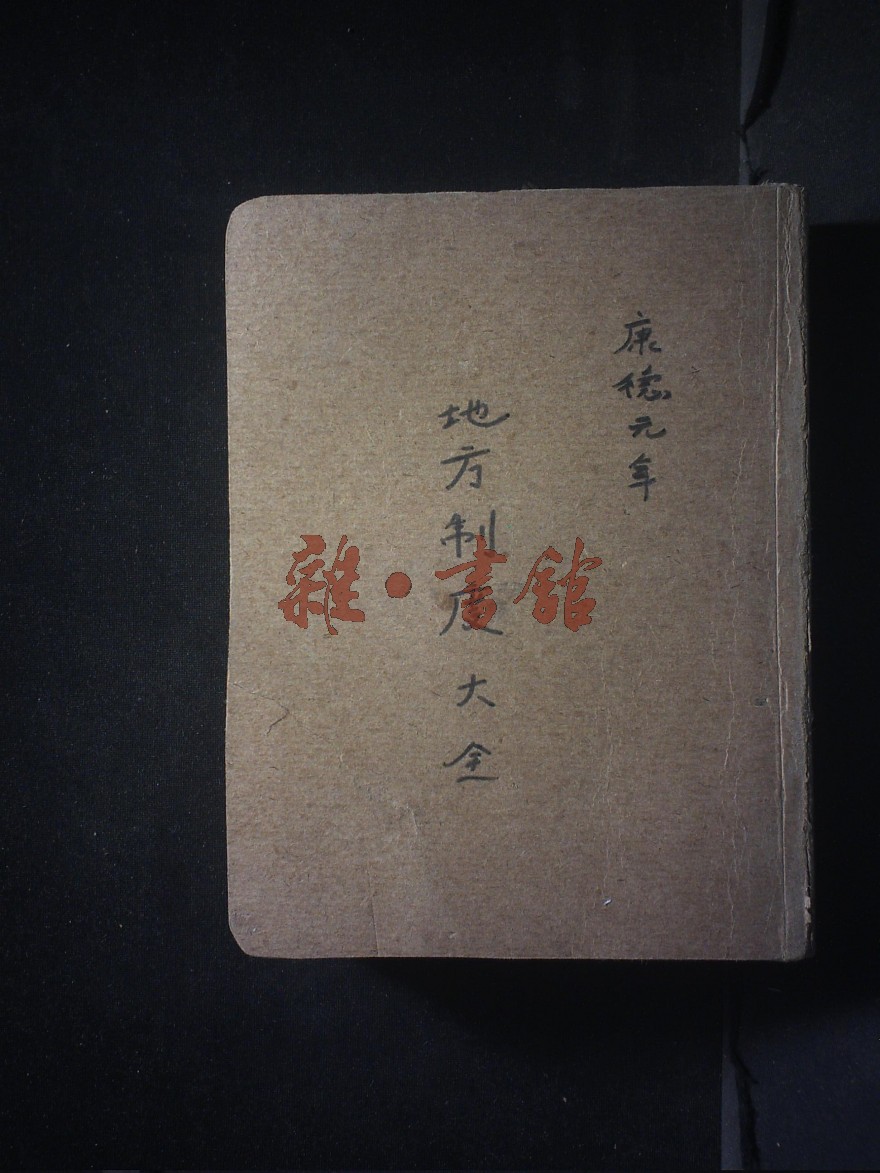 康德元年
地方制度大全
雜·書館